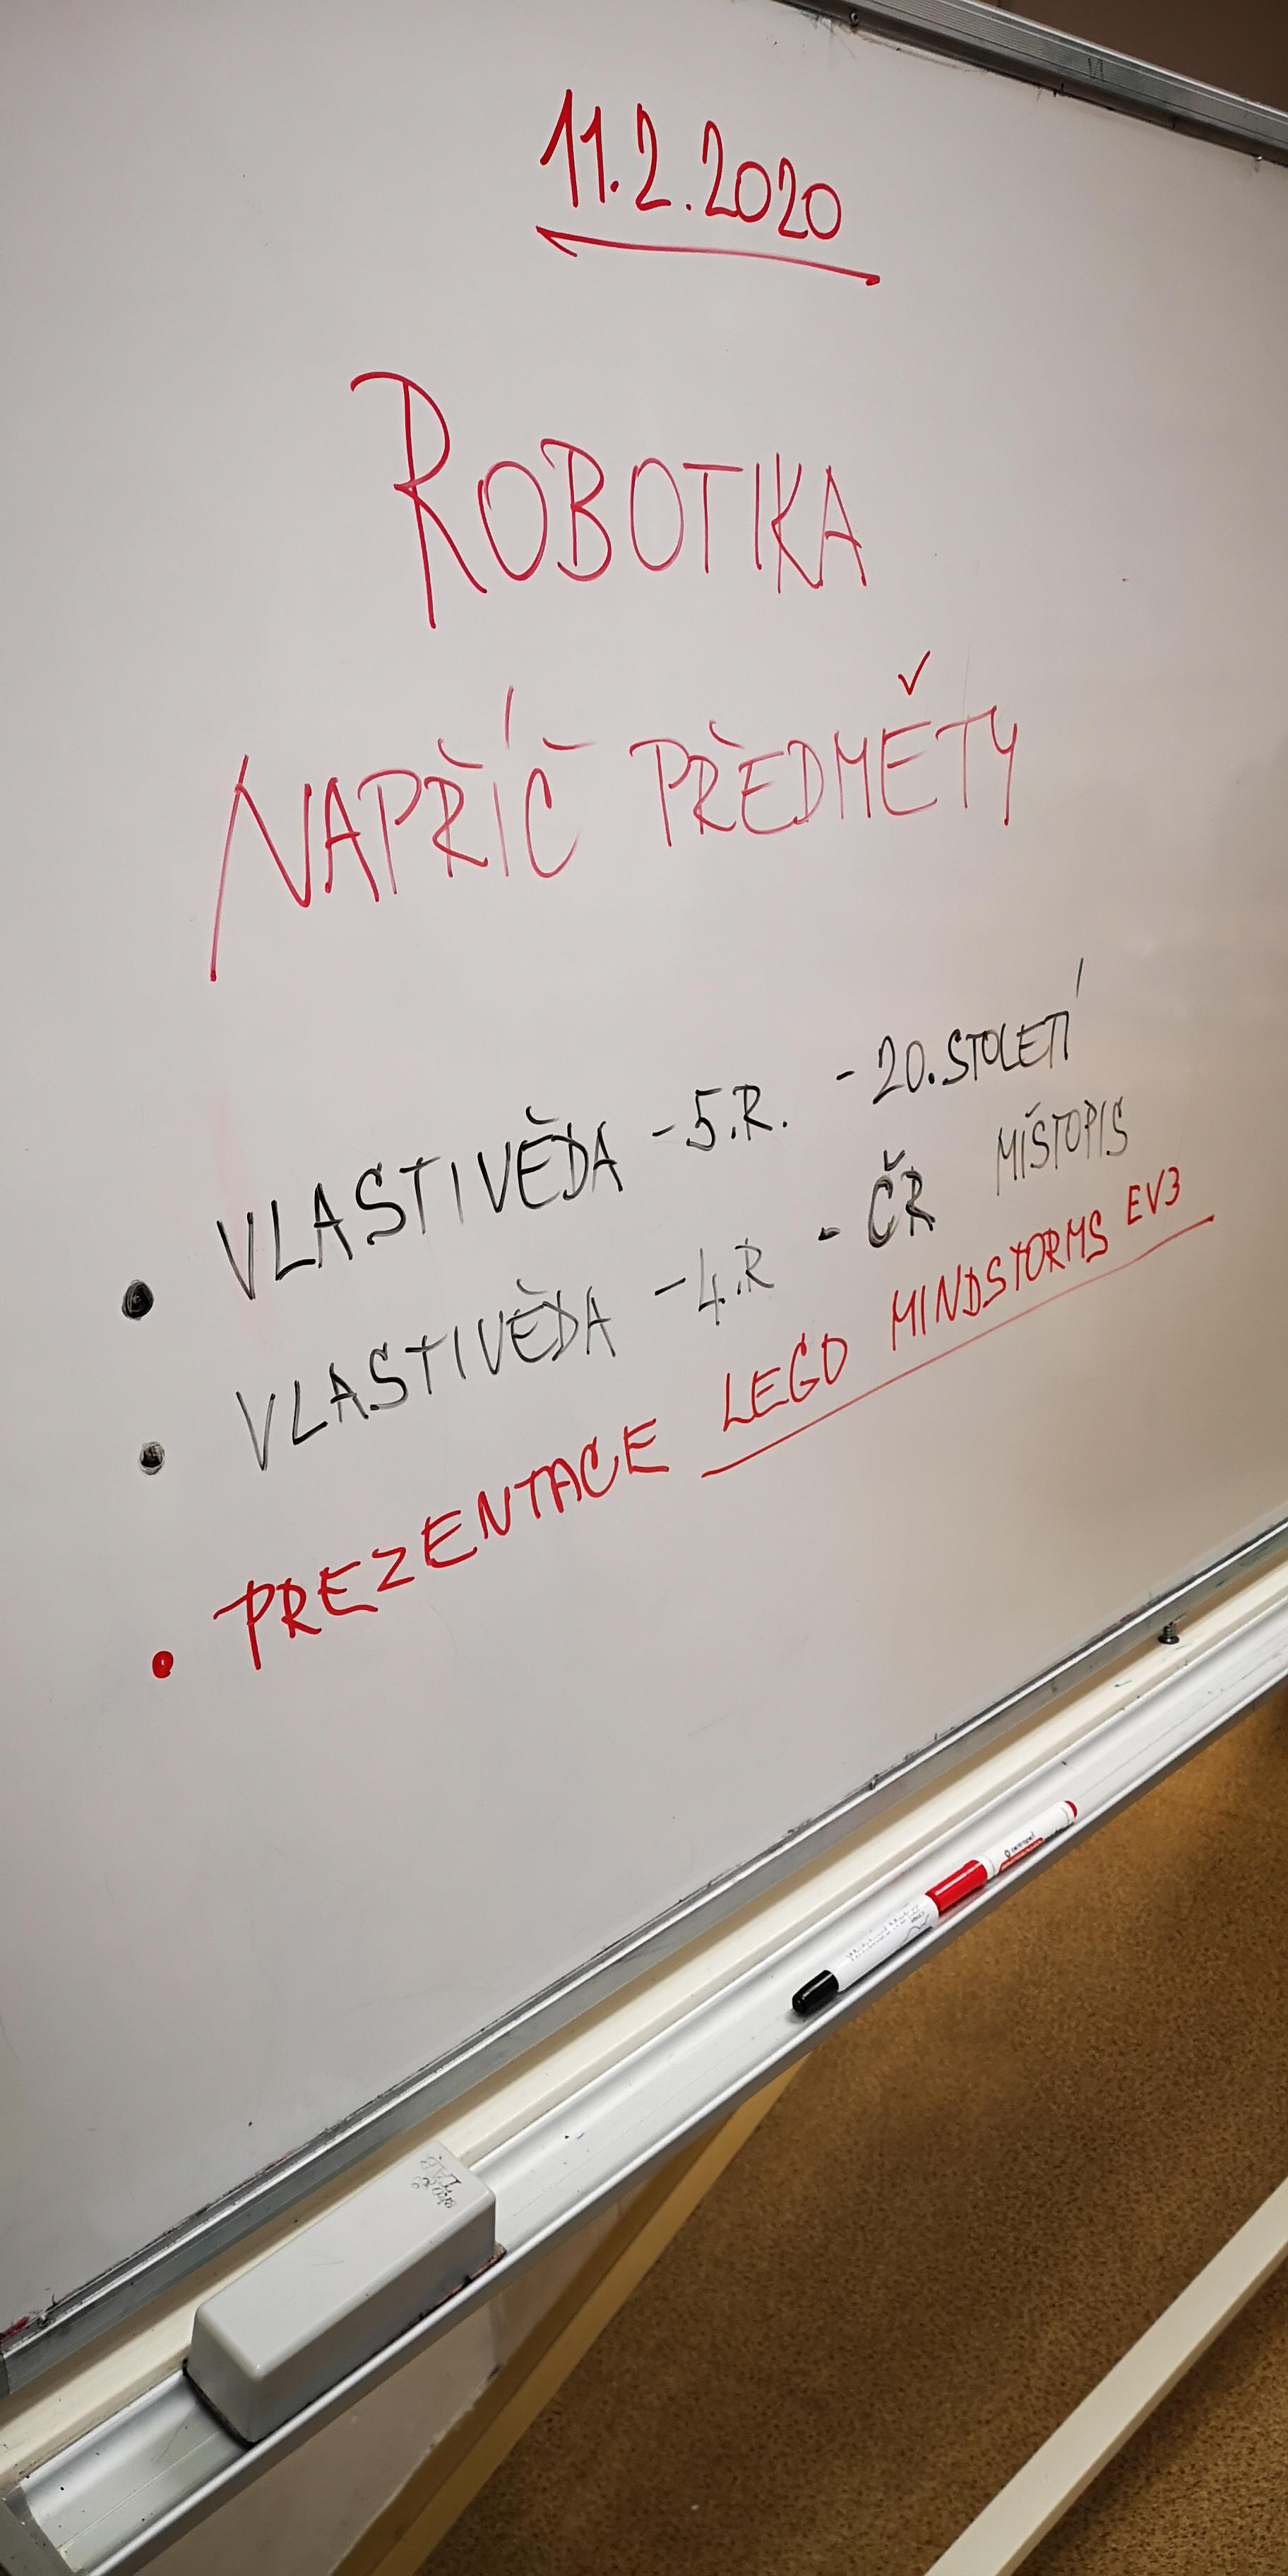 11.2.2020
ROBOTIKA
NAPŘÍČ PŘEDMĚTY
• VLASTIVĚDA - 5.R. - 20. STOLETÍ
• VLASTIVĚDA - 4.R - ČR MÍSTOPIS
• PREZENTACE LEGO MINDSTORMS EV3